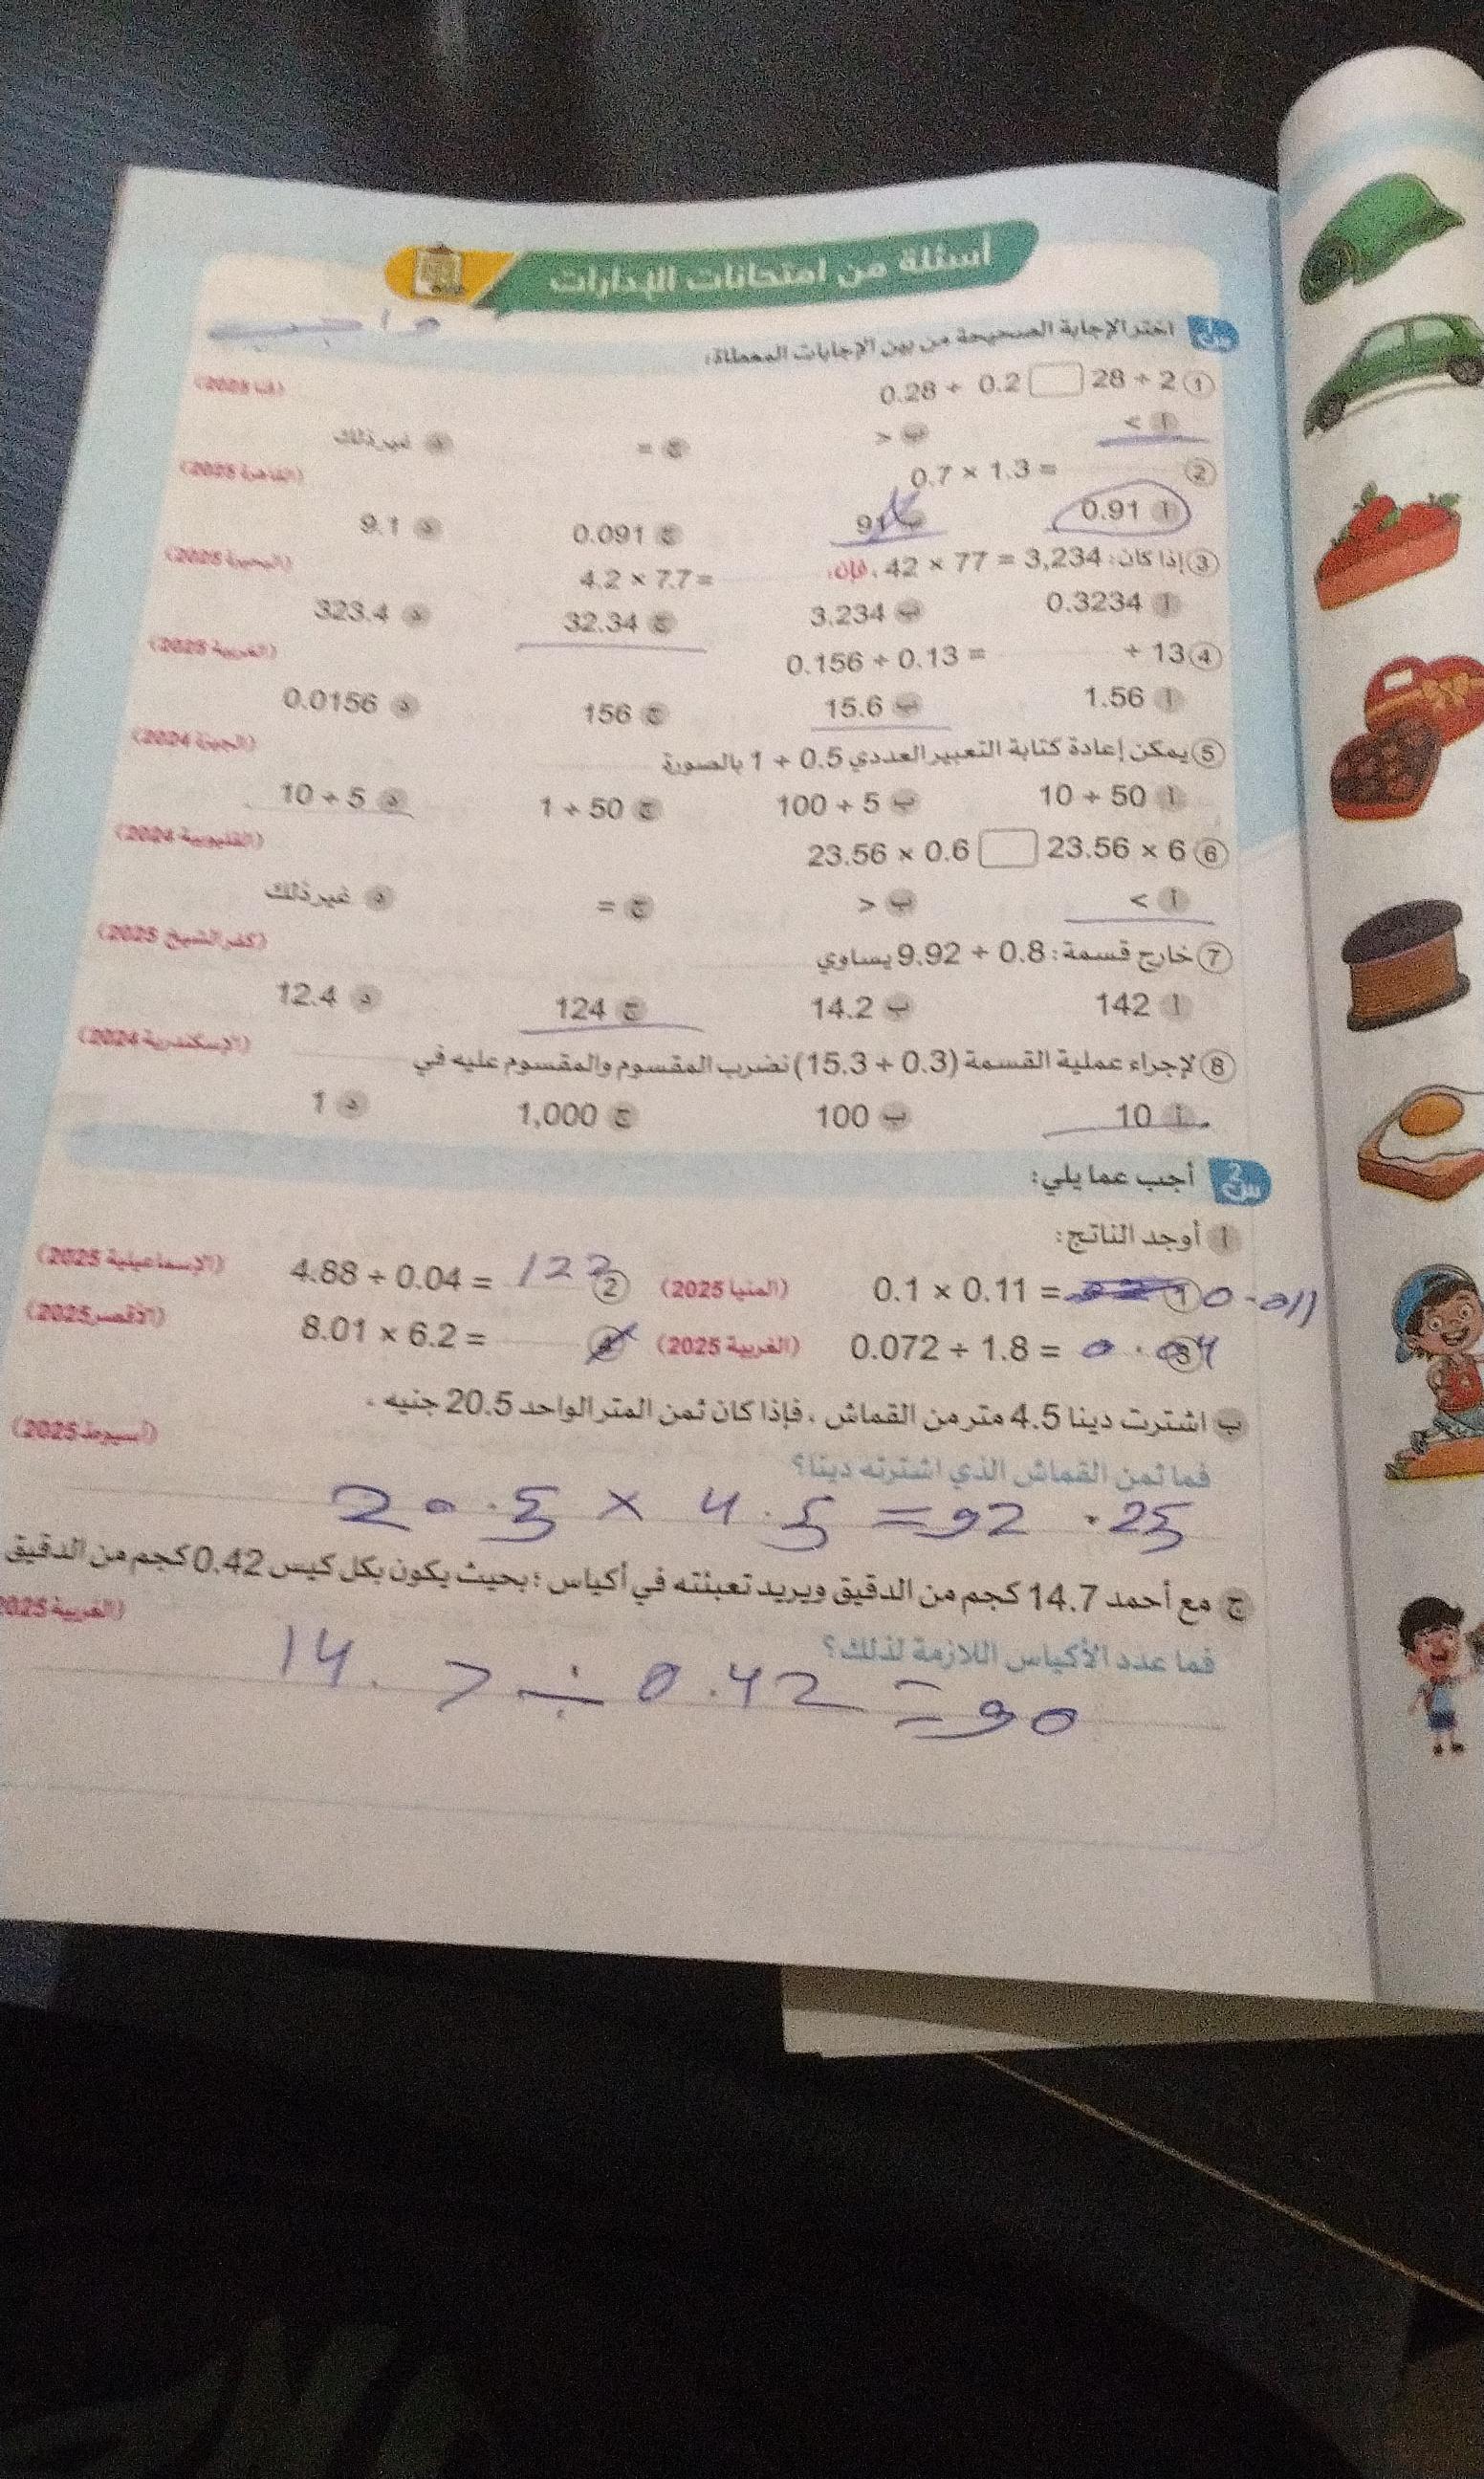 أسئلة من امتحانات الإدارات
واجب
س1 اختر الإجابة الصحيحة من بين الإجابات المعطاة:
① 28 ÷ 2 □ 0.28 ÷ 0.2 (قنا 2025)
أ > ب < ج = د غير ذلك
② 0.7 × 1.3 = (القاهرة 2025)
أ 0.91 ب 91 ج 0.091 د 9.1
③ إذا كان: 42 × 77 = 3,234، فإن: 4.2 × 7.7 = (البحيرة 2025)
أ 0.3234 ب 3.234 ج 32.34 د 323.4
④ 0.156 ÷ 0.13 = ÷ 13 (الغربية 2025)
أ 1.56 ب 15.6 ج 156 د 0.0156
⑤ يمكن إعادة كتابة التعبير العددي 0.5 ÷ 1 بالصورة (الجيزة 2024)
أ 50 ÷ 10 ب 5 ÷ 100 ج 50 ÷ 1 د 5 ÷ 10
⑥ 23.56 × 6 □ 23.56 × 0.6 (القليوبية 2024)
أ > ب < ج = د غير ذلك
⑦ خارج قسمة: 0.8 ÷ 9.92 يساوي (كفر الشيخ 2025)
أ 142 ب 14.2 ج 124 د 12.4
⑧ لإجراء عملية القسمة (15.3 ÷ 0.3) نضرب المقسوم والمقسوم عليه في (الإسكندرية 2024)
أ 10 ب 100 ج 1,000 د 1
س2 أجب عما يلي:
أ أوجد الناتج:
① 0.1 × 0.11 = 0.011 (المنيا 2025) ② 4.88 ÷ 0.04 = 122 (الإسماعيلية 2025)
③ 0.072 ÷ 1.8 = 0.04 (الغربية 2025) 8.01 × 6.2 = (الأقصر 2025)
ب اشترت دينا 4.5 متر من القماش، فإذا كان ثمن المتر الواحد 20.5 جنيه.
فما ثمن القماش الذي اشترته دينا؟ (أسيوط 2025)
20.5 × 4.5 = 92.25
ج مع أحمد 14.7 كجم من الدقيق ويريد تعبئته في أكياس؛ بحيث يكون بكل كيس 0.42 كجم من الدقيق
فما عدد الأكياس اللازمة لذلك؟ (الغربية 2025
14.7 ÷ 0.42 = 90